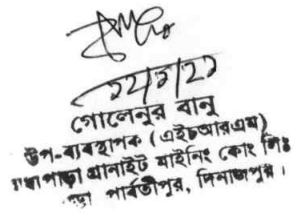 গোলেনুর বানু
উপ-ব্যবস্থাপক (এইচআরএম)
মধ্যপাড়া গ্রানাইট মাইনিং কোং লিঃ
পার্বতীপুর, দিনাজপুর।